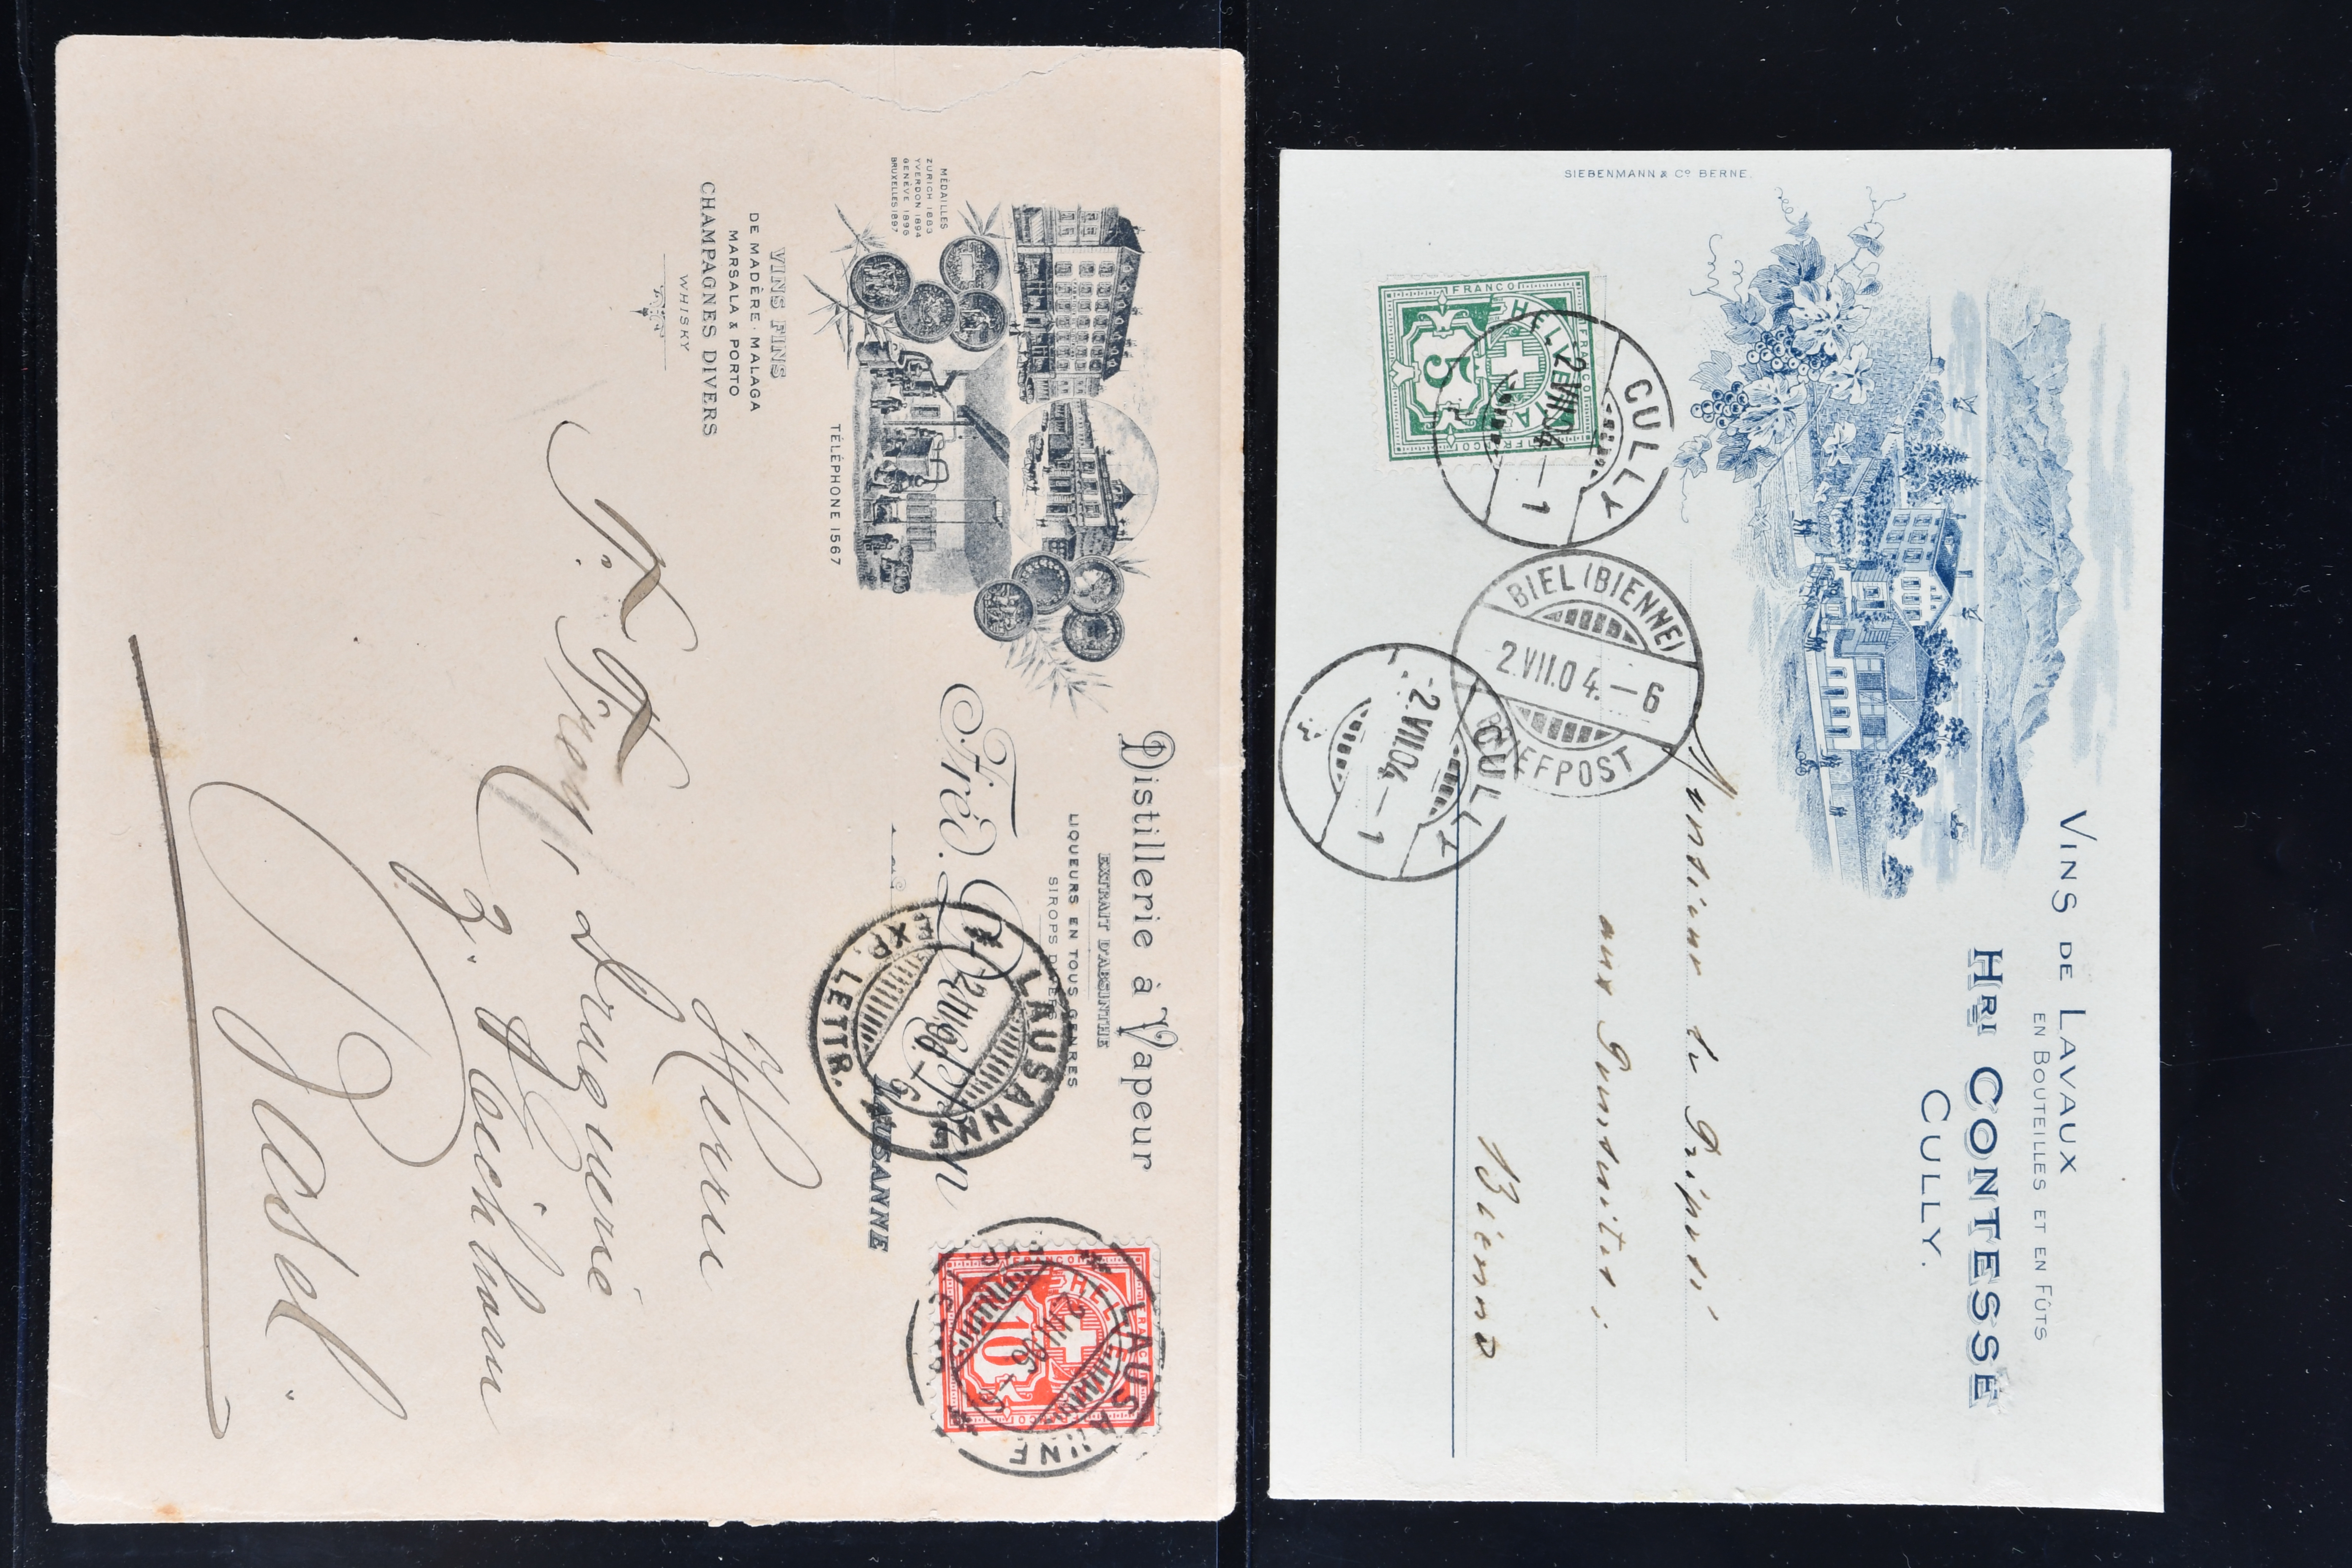 MÉDAILLES
ZURICH 1883
YVERDON 1894
GENÈVE 1896
BRUXELLES 1897
Distillerie à Vapeur
EXTRAIT D'ABSINTHE
LIQUEURS EN TOUS GENRES
SIROPS DIVERS
Fréd.
LAUSANNE
TÉLÉPHONE 1567
VINS FINS
DE MADÈRE · MALAGA
MARSALA & PORTO
CHAMPAGNES DIVERS
WHISKY
LAUSANNE
EXP. LETTR.
FRANCO
HELVETIA
10
LAUSANNE
Herrn
Droguerie
Basel.
VINS DE LAVAUX
EN BOUTEILLES ET EN FÛTS
HRI CONTESSE
CULLY.
SIEBENMANN & CO BERNE.
FRANCO
HELVETIA
5
CULLY
2.VII.04.–1
BIEL (BIENNE)
2.VII.04.–6
BRIEFPOST
CULLY
-2.VII.04–1
Monsieur le Préposé
aux Poursuites,
Bienne